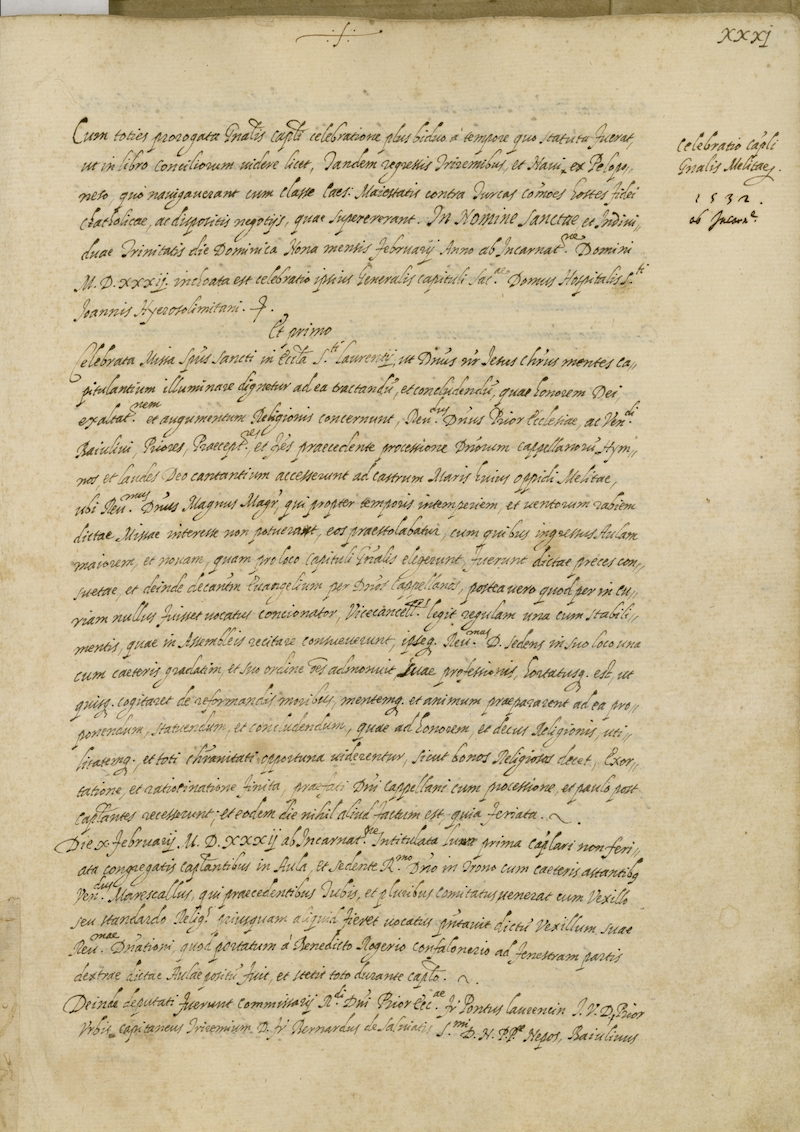 ·ſ·
xxxj
Cum toties prorogata Gnalis capli celebratione plus biduo a tempore quo statuta fuerat,
ut in libro Conciliorum videre licet, Tandem regressis Triremibus, et Navi ex Pelopo,,
neso, quo navigaverant cum classe Caes: Maiestatis contra Turcas comões hostes fidei
chatholicae, ac dispositis negotijs, quae supererant. In Nomine Sanctae et Indivi,,
duae Trinitatis die Dominica Nona mensis februarij Anno ab Incarnat.ne Domini
M.D.XXXij. inchoata est celebratio ipsius Generalis capituli Sac.ae Domus Hospitalis S.ti
Joannis Hyerosolimitani.
Celebratio capli
Gnalis Melitae.
1532.
ab Incarn.e
Et primo
Celebrata Missa Spūs Sancti in Eccla S.ti Laurentij, ut Dnūs nr̄ Jesus Chrūs mentes ca,,
pitulantium illuminare dignetur ad ea tractandū, et concludendū, quae honorem Dei
exaltat.nem et augumentum Religionis concernunt, Reu.dus Dnūs Prior Ecclesiae, ac Ven.di
Baiulivi, Priores, Praecept.res et frēs praecedente processione Dnorum cappellanorū Hym,,
nos et laudes Deo cantantium accesserunt ad castrum Maris huius oppidi Melitae,
ubi Reu.mus Dnūs Magnus Magr̄, qui propter temporis intemperiem, et ventorum rabiem
dictae Missae interesse non potuerat, eos praestolabatur, cum quibus ingressus Aulam
maiorem, et novam, quam pro loco Capituli Gnalis elegerunt, fuerunt dictae preces con,,
suetae, et deinde decantm̄ Evangelium per Dnōs Cappellanos, postea vero quod per in cu,,
riam nullus fuisset vocatus concionator, Vicecancell.us legit regulam una cum stabili,,
mentis, quae in Assembleis recitare consueverunt, ipseq. Reu.mus D. sedens in suo loco una
cum caeteris gradatim, et suo ordine oēs admonuit suae professionis, hortatusq. est, ut
quisq. cogitaret de reformandis moribus, mentemq. et animum praepararent ad ea pro,,
ponendum, statuendum, et concludendum, quae ad honorem, et decus Religionis, uti,,
litatemq. et toti chrānitati opportuna viderentur, sicut bonos Religiosos decet, Exor,,
tatione, et ratiocinatione finita, praefati Dnī Cappellani cum processione, et paulo post
caplantes recesserunt; et eodem die nihil aliud factum est, quia feriata.
Die x februarij M.D.XXXij ab Incarnat.ne Intitulata Lunae prima caplari non feri,,
ata congregatis caplantibus in Aula, et sedente R.mo Dnō in Trono cum caeteris astantibq
Ven.dus Marescallus, qui praecedentibus Tubis, et pluribus comitatus venerat cum Vexillo
seu standardo Relig.s priusquam aliquid fieret vocatus pntavit dictū Vexillum suae
Reu.mae Dnationi, quod portatum á Benedicto Rogerio confalonerio ad fenestram partis
dextrae dictae Aulae positū fuit, et stetit toto durante caplo.
Deinde deputati fuerunt commissarij R.di Dnī Prior Ecc.ae fr̄ Pontus Laurencin I.V.D. Prior
Urbis, capitaneus Triremium D. fr̄ Bernardus de Salviatis S.mi D.N.P.Pae Nepos, Baiulivus